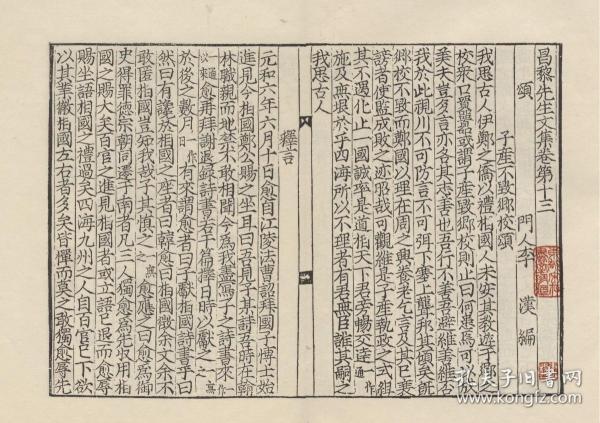 昌黎先生文集卷第十三
門人李 漢 編
頌
子產不毀鄉校頌
我思古人伊鄭之僑以禮相國人未安其教遊于鄉之
校衆口囂囂或謂子產毀鄉校則止曰何患焉可以成
美夫豈多言亦各其志善也吾行不善吾避維善維否
我於此視川不可防言不可弭下塞上聾邦其傾矣旣
鄉校不毀而鄭國以理在周之興養老乞言及其已衰
謗者使監成敗之迹昭哉可觀維是子產執政之式維
其不遇化止一國誠率是道相天下君旁暢交達
施及無垠於乎四海所以不理有君無臣誰其嗣之
我思古人
釋言
元和六年六月十日愈自江陵法曹詔拜國子博士始
進見今相國鄭公公賜之坐且曰吾見子某詩吾時在翰
林職親而地禁不敢相聞今爲我盡寫子之詩書來
愈再拜謝退錄詩書若干篇擇日時以獻
於後之數月 有來謂愈者曰子獻相國詩書乎曰
然曰有讒於相國之座者曰韓愈曰相國徵余文余不
敢匿相國豈知我哉子其慎之 愈應之曰愈爲御
史得罪德宗朝同遷于南者凡三人獨愈爲先收用相
國之賜大矣百官之進見相國者或立語以退而愈辱
賜坐語相國之禮過矣四海九州之人自百官已下欲
以其業徹相國左右者多矣皆憚而莫之敢獨愈辱先
孔夫子旧书网
www.kongfz.com